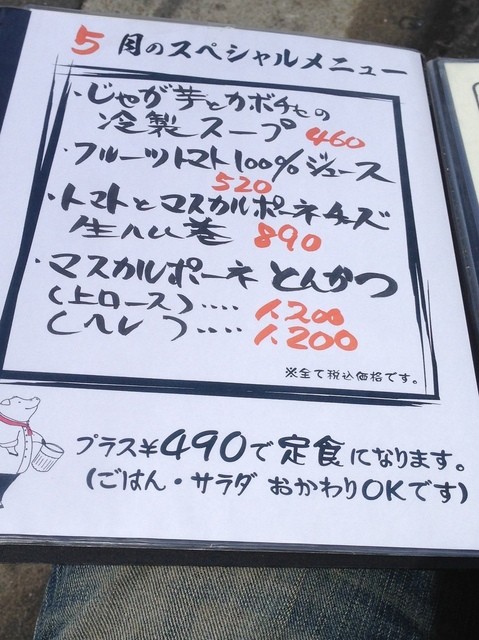 5月のスペシャルメニュー
・じゃが芋とカボチャの
冷製スープ 460
・フルーツトマト100%ジュース
520
・トマトとマスカルポーネチーズ
生ハム巻 890
・マスカルポーネとんかつ
(上ロース)‥‥1,200
(ヘレ)‥‥1,200
※全て税込価格です。
プラス¥490で定食になります。
(ごはん・サラダ おかわりOKです)